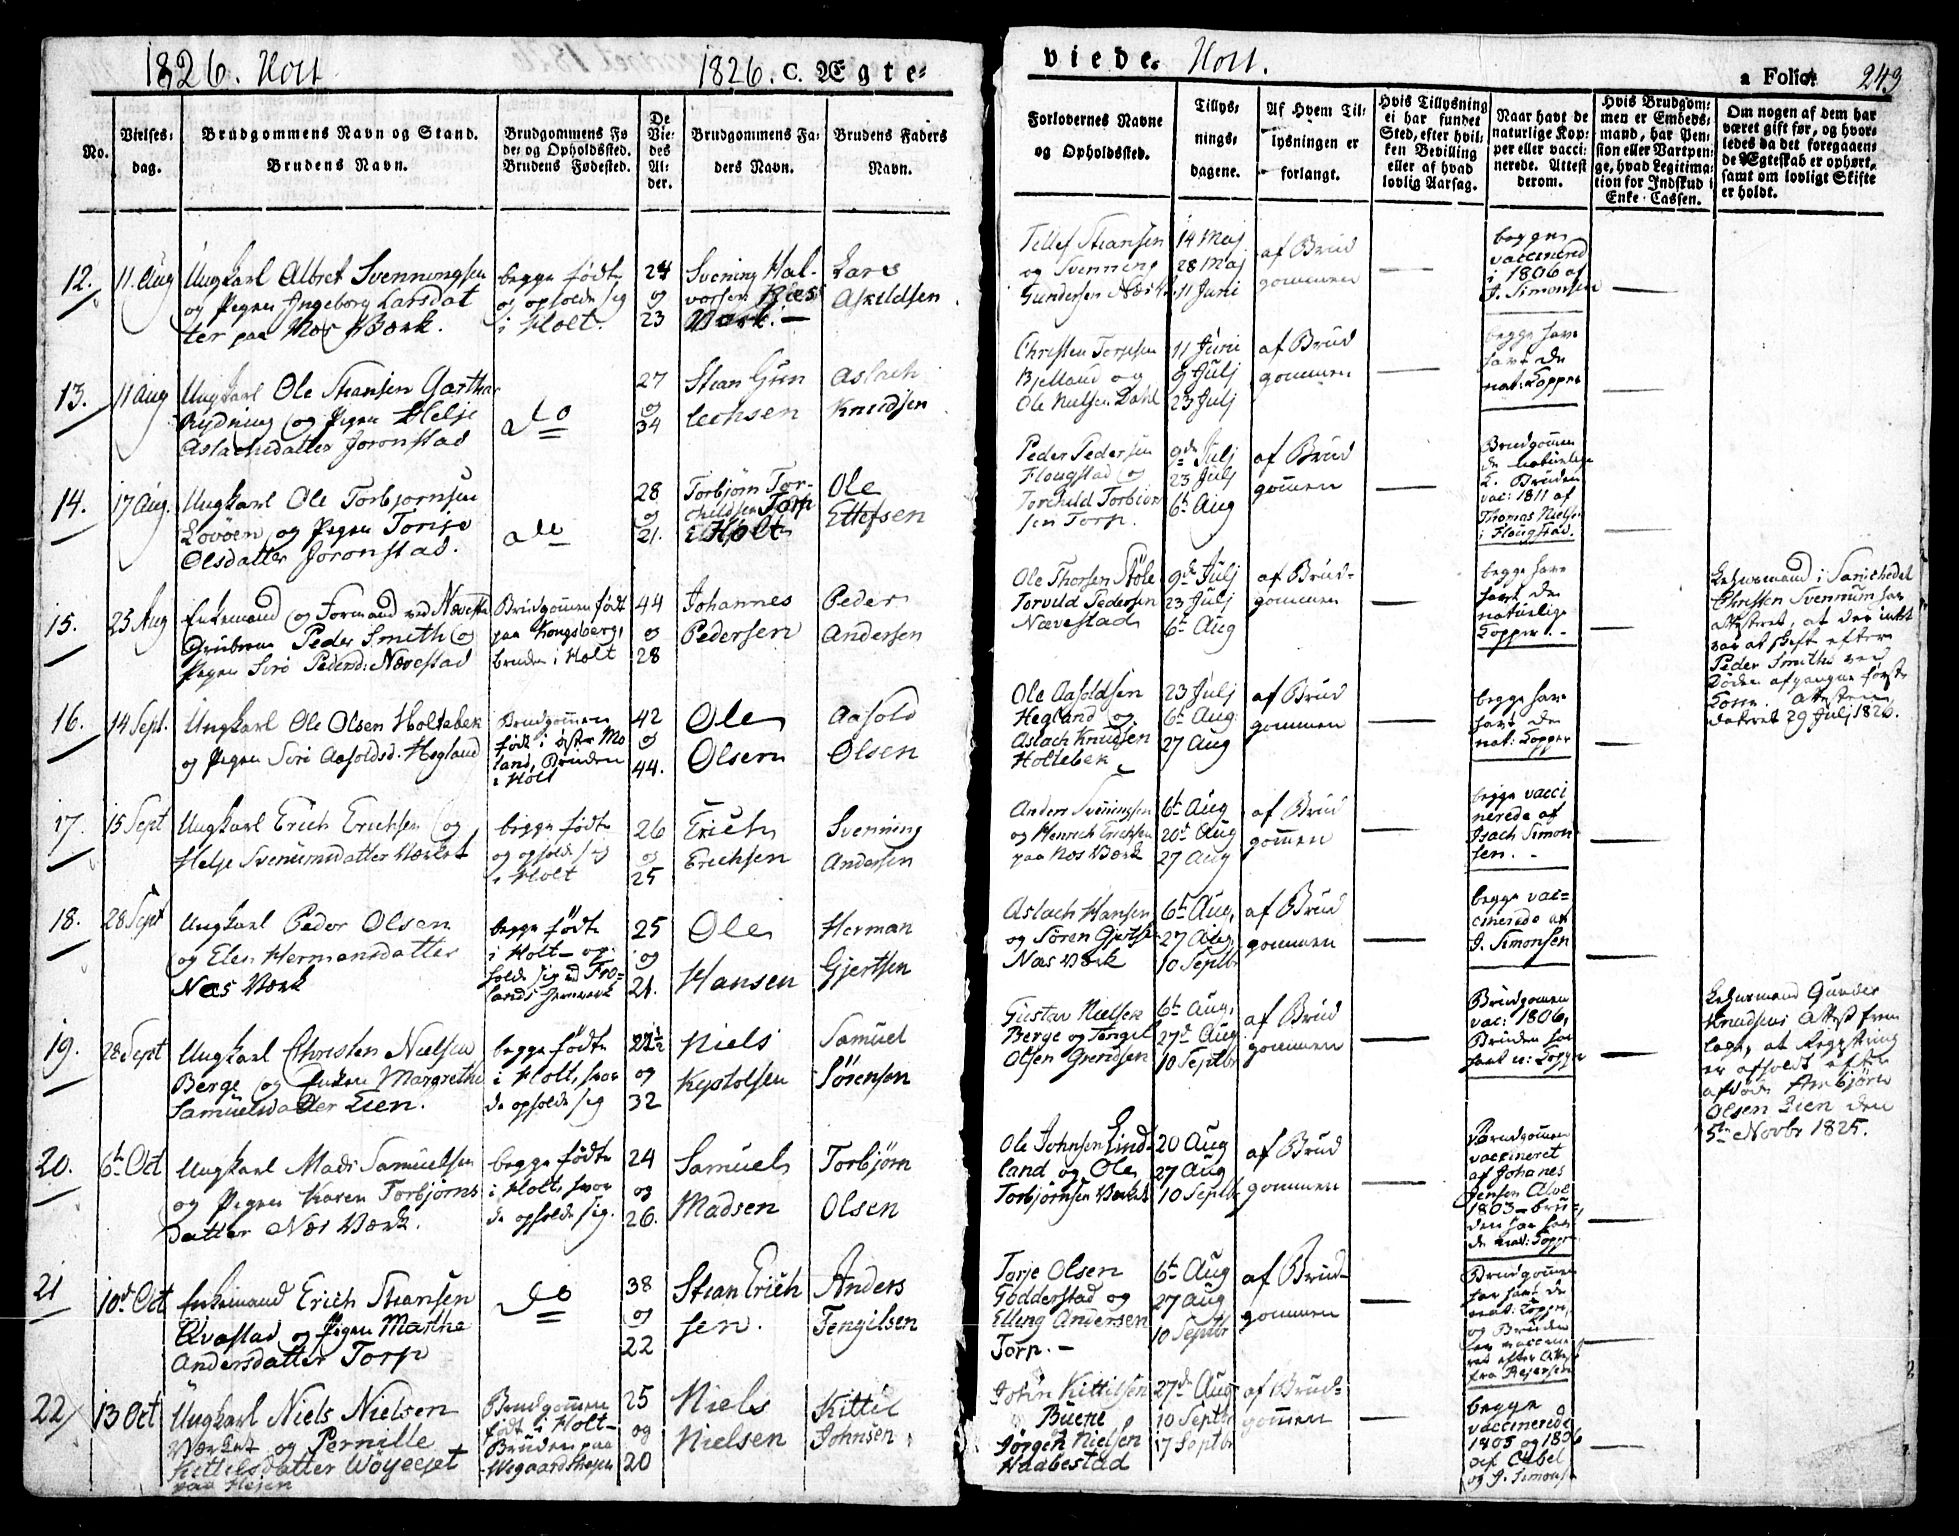 1826. Holt
1826. C. Ægte=
viede. Holt.
a Folio. 243
No.
Vielses=
dag.
Brudgommens Navn og Stand.
Brudens Navn.
Brudgommens Fø
de= og Opholdssted.
Brudens Fødested.
De
Vie=
des
Al=
der.
Brudgommens Fa=
ders Navn.
Brudens Faders
Navn.
Forlovernes Navne
og Opholdssted.
Tillys=
nings=
dagene.
Af Hvem Til=
lysningen er
forlangt.
Hvis Tillysning
ei har fundet
Sted, efter hvil=
ken Bevilling
eller af hvad
lovlig Aarsag.
Naar havt de
naturlige Kop=
per eller vacci=
nerede. Attest
derom.
Hvis Brudgom=
men er Embeds=
mand, har Pen=
sion eller Vartpen=
ge, hvad Legitima=
tion for Indskud i
Enke-Cassen.
Om nogen af dem har
været gift før, og hvor=
ledes da det foregaaen=
de Ægteskab er ophørt,
samt om lovligt Skifte
er holdt.
12.
11. Aug
Ungkarl Albret Svenningsen
og Pigen Ingeborg Larsdat
ter paa Næs Værk.
begge fødte
og opholde sig
i Holt.
24
og
23
Svening Hal-
vorsen Næs
Værk. —
Lars
Askildsen
Tellef Stiansen
og Svenning
Gundersen
14 Maj
28 Maj
11 Juni
af Brud
gommen
begge
vaccinered
i 1806 af
J. Simonsen
13.
11 Aug
Ungkarl Ole Stiansen Garthe
Rydning og Pigen Helje
Aslachsdatter Joronstad
do
27
og
34
Stian Gun
lechsen
Aslach
Knudsen
Christen Terjesen
Bjelland og
Ole Nielsen Dahl
11 Juni
9 Julj
23 Julj
af Brud
gommen
begge have
havt de
nat: Kopper
14.
17 Aug.
Ungkarl Ole Torbjørnsen
Løvøen og Pigen Torije
Olsdatter Joronstad.
do
28
og
21.
Torbjørn Tor-
childsen Torp
Holt
Ole
Ellefsen
Peder Pedersen
Flougstad og
Torchild Torbiør
sen Torp.
9de Julj
23 Julj
6te Aug
af Brud
gommen
Brudgommen
de naturlige
K. Bruden
vac: 1811 af
Thomas Nielsen
i Flougstad.
15.
25 Aug
Enkemand og Formand ved Næveste
Gruberne Peder Smith og
Pigen Siri Pedersd: Nævestad
Brudgommen født
paa Kongsberg,
bruden i Holt
44
og
28
Johannes
Pedersen
Peder
Andersen
Ole Thorsen Støle
Torvild Pedersen
Nævestad
9de Julj
23 Julj
6te Aug
af Brud-
gommen
begge have
havt de
naturlige
Kopper.
Lehnsmand i Sanchedal
Christen Svennum har
attesteret, at der intet
var at skifte efter
Peder Smiths ved
Døden afgangne første
Kone. Attesten
dateret 29 Julj 1826.
16.
14 Sept.
Ungkarl Ole Olsen Holtebek
og Pigen Siri Aasoldsd. Hegland
Brudgommen
født i øster Mo
land, Bruden
i Holt
42
og
44.
Ole
Olsen
Aasold
Olsen
Ole Aasoldsen
Hegland og
Aslach Knudsen
Holtebek
23 Julj
6te Aug
27 Aug
af Brud
gommen
begge have
havt de
nat: Kopper
17.
15 Sept
Ungkarl Erich Erichsen og
Helje Svenumsdatter Værket
begge fødte
og opholde sig
i Holt
26
og
25
Erich
Erichsen
Svenning
Andersen
Anders Svenningsen
og Henrich Erichsen
paa Næs Værk
6te Aug
20de Aug
27 Aug
af Brud
gommen
begge vacci
nerede af
Isach Simon
sen.
18.
28 Sept
Ungkarl Peder Olsen
og Elen Hermansdatter
Næs Værk
begge fødte
i Holt og op
holde sig ved Fro=
lands Jernværk
25
og
21.
Ole
Hansen
Herman
Gjertsen
Aslach Hansen
og Søren Gjertsen
Næs Værk
6te Aug.
27 Aug.
10 Septbr
af Brud
gommen
begge vac=
cinerede af
J. Simonsen
19.
28 Sept
Ungkarl Christen Nielsen
Berge og Enken Margrethe
Samuelsdatter Lien.
begge fødte
i Holt, hvor
de opholde sig
og
32
Niels
Kystolsen
Samuel
Sørensen
Gustav Nielsen
Berge og Tengel
Olsen Grendsen
6te Aug.
27de Aug
10 Septbr
af Brud
gommen
Brudgommen
vac: 1806,
Bruden har
havt n: Kopper
Lehnsmand Gunder
Knudsens Attest frem
lagt, at Registering
er afholdt efter
afdøde Anbjørn
Olsen Lien den
5te Novbr 1825.
20.
6te Oct
Ungkarl Mads Samuelsen
og Pigen Karen Torbjørns
Datter Næs Værk.
begge fødte
i Holt, hvor
de opholde sig.
24
og
26.
Samuel
Madsen
Torbjørn
Olsen
Ole Johnsen Lind
land og Ole
Torbjørnsen Værket
20 Aug
27 Aug
10 Septbr
af Brud
gommen
Brudgommen
vaccineret
af Johanes
Jensen Alve
1803 – bru=
den har hav
de nat: Kopper
21
10de Oct
Enkemand Erich Stiansen
Qvastad og Pigen Marthe
Andersdatter Torp
do
38
og
22
Stian Erich
sen.
Anders
Tengilsen
Torje Olsen
Godderstad og
Elling Andersen
Torp. —
6te Aug
27 Aug
10 Septbr
af Brud-
gommen
Brudgommen
har havt de
nat: Kopper,
og Bruden
har vaccine
ret efter Attest
fra Reiersen
22
13 Oct
Ungkarl Niels Nielsen
Værket og Pernille
Kittilsdatter
Brudgommen
født i Holt
Bruden paa
25
og
20
Niels
Nielsen
Kittil
Johnsen
John Kittilsen
Buene
Jørgen Nielsen
Haabestad
27de Aug
10 Septbr
17 Septbr
af Brud=
gommen
begge
vaccinerede
1805 og 1806
af Cabel
og J. Simonsen